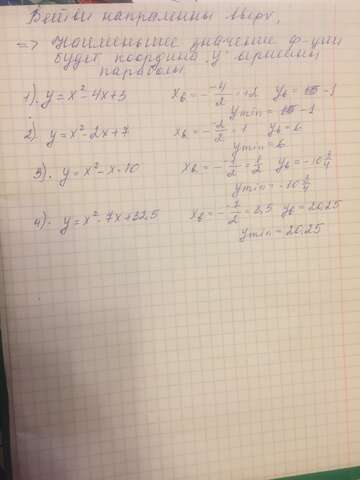 Ветви направлены вверх,
=> Наименьшее значение ф-ции
будет координ. "y" вершины
параболы
1). y = x² - 4x + 3 xв = - -4/2 = +2 yв = -1
ymin = -1
2). y = x² - 2x + 7 xв = - -2/2 = 1 yв = 6
ymin = 6
3). y = x² - x - 10 xв = - -1/2 = 1/2 yв = -10 1/4
ymin = -10 1/4
4). y = x² - 7x + 32,5 xв = - -7/2 = 3,5 yв = 20,25
ymin = 20,25